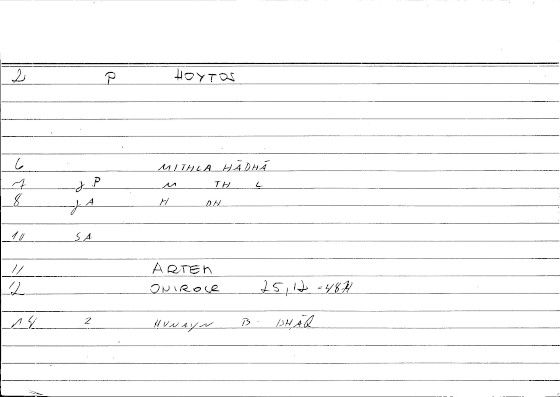 2 P HOYTOS
6 MITHLA HĀDHĀ
7 γ P M TH L
8 γ A H DH
10 SA
11 ARTEM
12 ONIROCR 25,12 -48A
14 2 HUNAYN B ISHĀQ